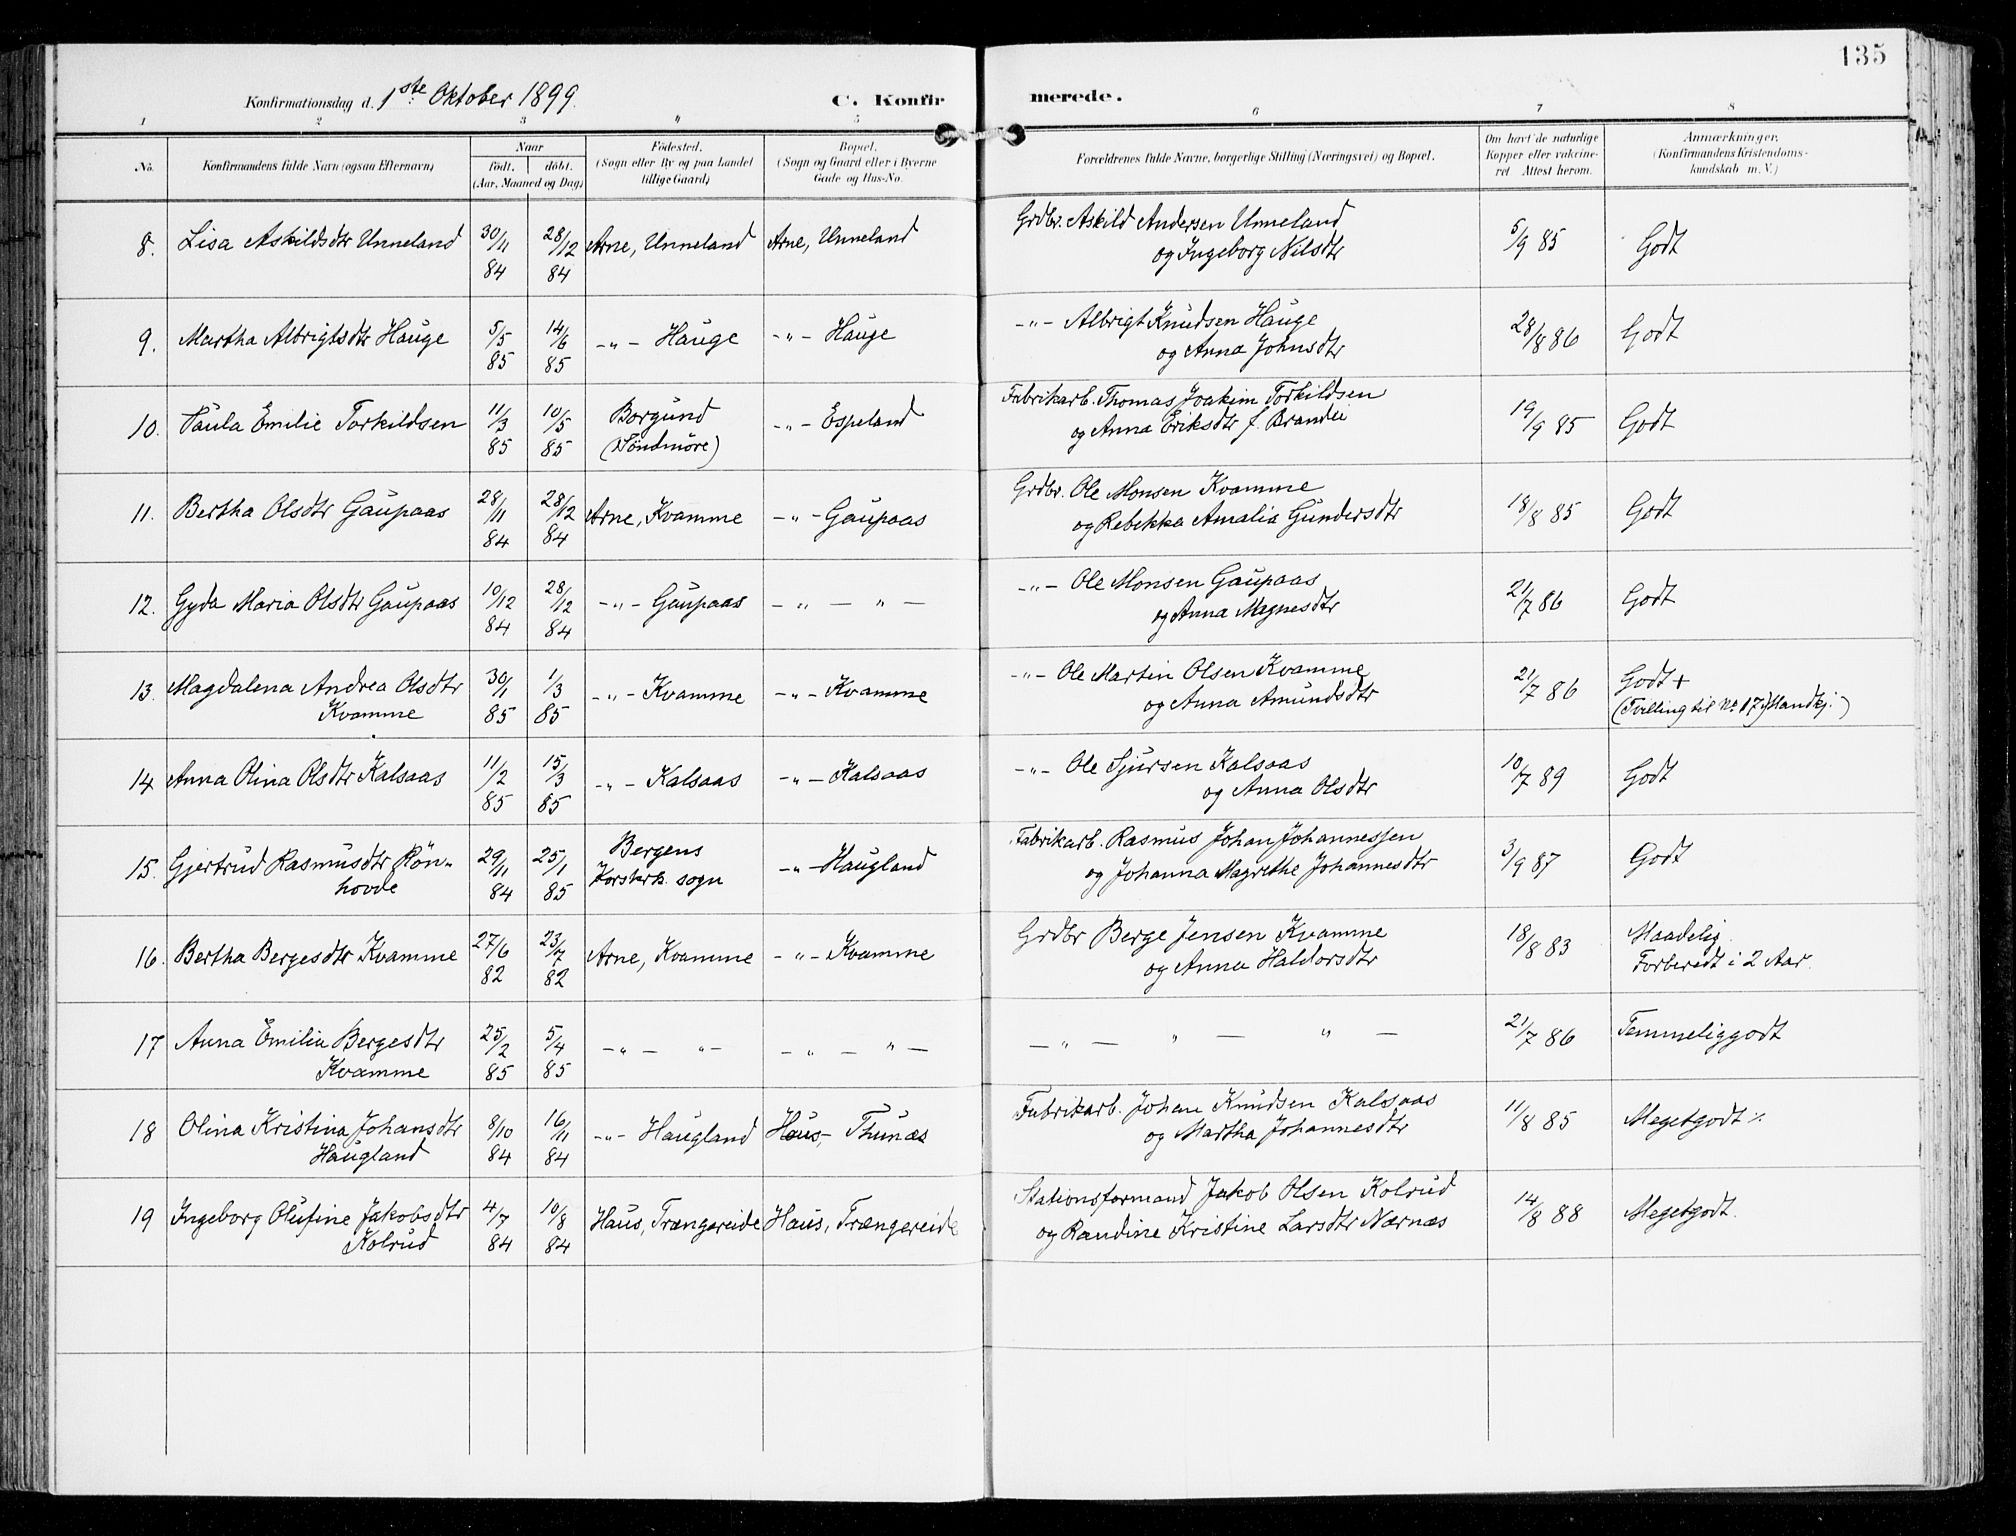 135
Konfirmationsdag d. 1ste Oktober 1899. C. Konfirmerede.
1 2 3 4 5 6 7 8
No. Konfirmandens fulde Navn (ogsaa Efternavn) Naar født. døbt. (Aar, Maaned og Dag) Fødested. (Sogn eller By og paa Landet tillige Gaard) Bopæl. (Sogn og Gaard eller i Byerne Gade og Hus-No. Forældrenes fulde Navne, borgerlige Stilling (Næringsvei) og Bopæl. Om havt de naturlige Kopper eller vakcineret. Attest herom. Anmærkninger. (Konfirmandens Kristendomskundskab m. V.)
8. Lisa Askildsdtr Unneland 30/11 84 28/12 84 Arne, Unneland Arne, Unneland Grdbr. Askild Andersen Unneland og Ingeborg Nilsdtr 5/9 85 Godt
9. Martha Albrigtsdtr Hauge 5/5 85 14/6 85 -"- Hauge -"- Hauge -"- Albrigt Knudsen Hauge og Anna Johnsdtr 28/8 86 Godt
10. Paula Emilie Torkildsen 11/3 85 10/5 85 Borgund (Söndmöre) -"- Espeland Fabrikarb. Thomas Joakim Torkildsen og Anna Eriksdtr f. Brandei 19/9 85 Godt
11. Bertha Olsdtr Gaupaas 28/11 84 28/12 84 Arne, Kvamme -"- Gaupaas Grdbr. Ole Monsen Kvamme og Rebekka Amalia Gundersdtr 18/8 85 Godt
12. Gyda Maria Olsdtr Gaupaas 10/12 84 28/12 84 -"- Gaupaas - " - " - -"- Ole Monsen Gaupaas og Anna Magnesdtr 21/7 86 Godt
13. Magdalena Andrea Olsdtr Kvamme 30/1 85 1/3 85 -"- Kvamme -"- Kvamme -"- Ole Martin Olsen Kvamme og Anna Amundsdtr 21/7 86 Godt + (Tvilling til No 17 i Mandkj.)
14 Anna Olina Olsdtr Kalsaas 11/2 85 15/3 85 -"- Kalsaas -"- Kalsaas -"- Ole Sjursen Kalsaas og Anna Olsdtr 10/7 89 Godt
15. Gjertrud Rasmusdtr Rönhovde 29/11 84 25/1 85 Bergens Korskrk. sogn -"- Haugland Fabrikarb. Rasmus Johan Johannessen og Johanna Magrethe Johannesdtr 3/9 87 Godt
16. Bertha Bergesdtr Kvamme 27/6 82 23/7 82 Arne, Kvamme -"- Kvamme Grdbr Berge Jensen Kvamme og Anna Haldorsdtr 18/8 83 Maadelig. Forberedt i 2 Aar.
17 Anna Emilia Bergesdtr Kvamme 25/2 85 5/4 85 - " - " - - " - " - - " - " - " - 21/7 86 Temmelig godt
18 Olina Kristina Johansdtr Haugland 8/10 84 16/11 84 -"- Haugland Haus, Thunæs Fabrikarb. Johan Knudsen Kalsaas og Martha Johannesdtr 11/8 85 Megetgodt ⁒
19 Ingeborg Olufine Jakobsdtr Kolrud 4/7 84 10/8 84 Haus, Trængereide Haus, Trængereide Stationsformand Jakob Olsen Kolrud og Randine Kristine Larsdtr Nærnæs 14/8 88 Megetgodt.